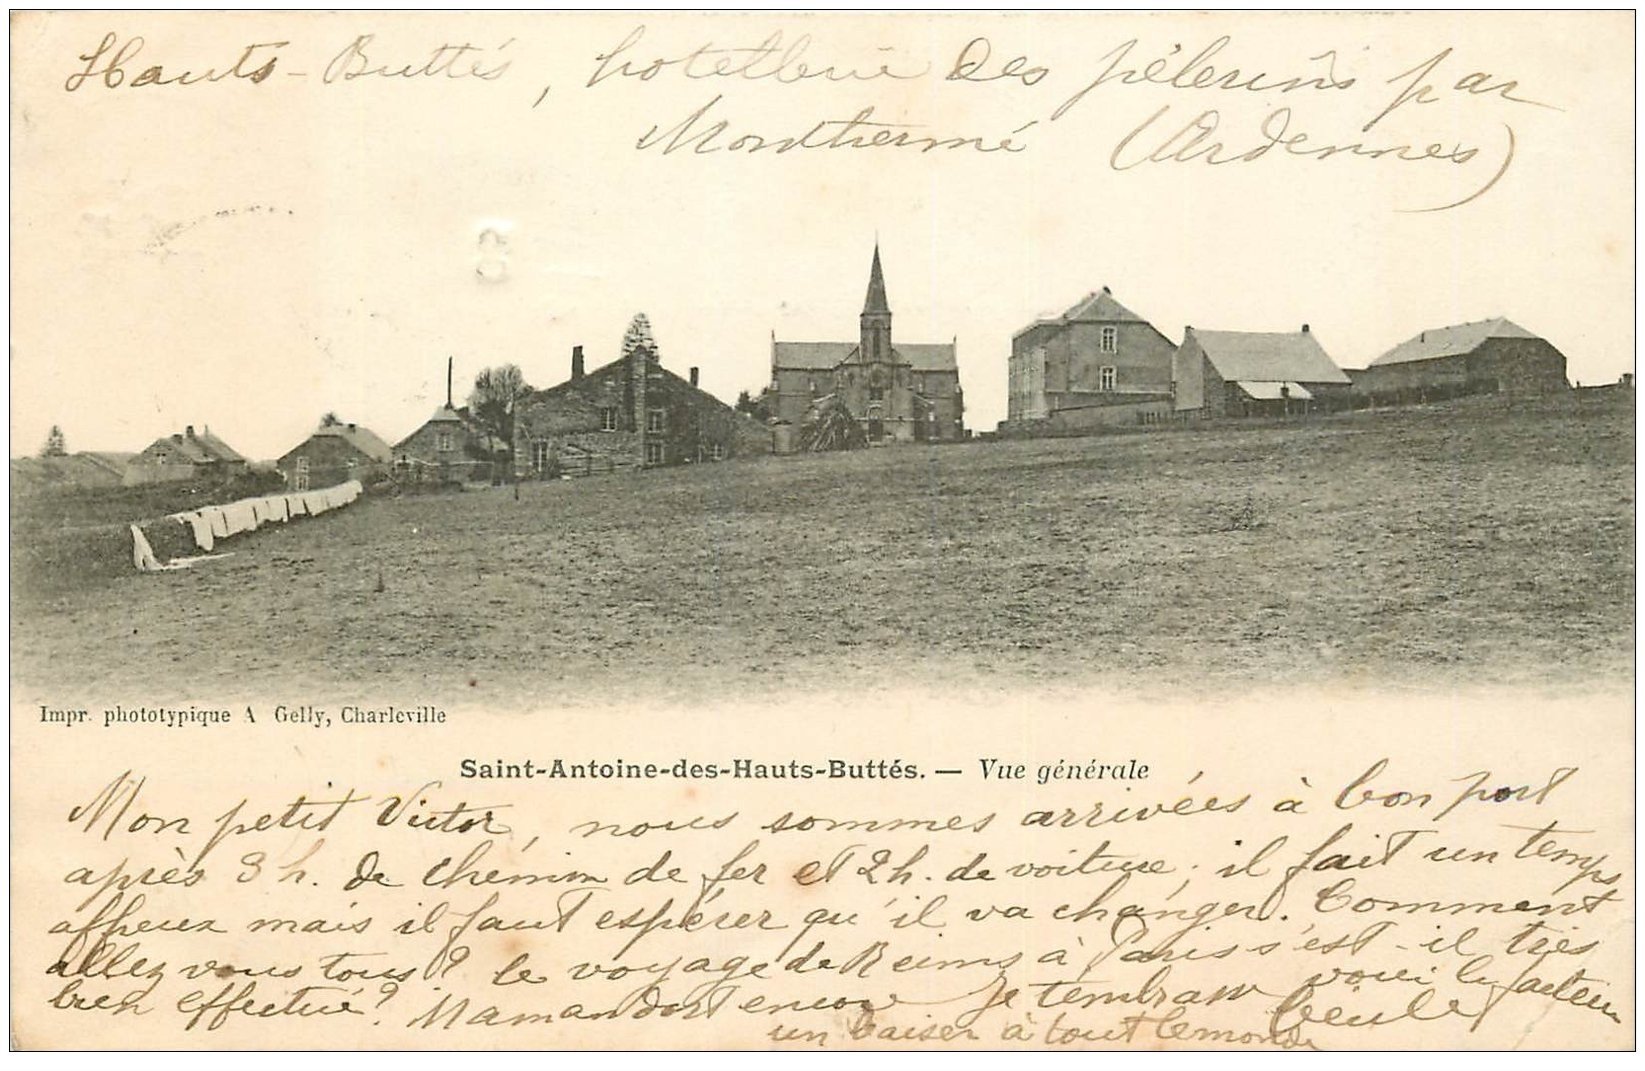 Hauts-Buttés, hotellerie des pèlerins par
Monthermé (Ardennes)
Impr. phototypique A Gelly, Charleville
Saint-Antoine-des-Hauts-Buttés. — Vue générale
Mon petit Victor, nous sommes arrivées à bon port
après 3 h. de chemin de fer et 2 h. de voiture; il fait un temps
affreux mais il faut espérer qu'il va changer. Comment
allez vous tous? le voyage de Reims à Paris s'est-il très
bien effectué? Maman dort encore Je tembrasse voici le facteur
un baiser à tout lemonde